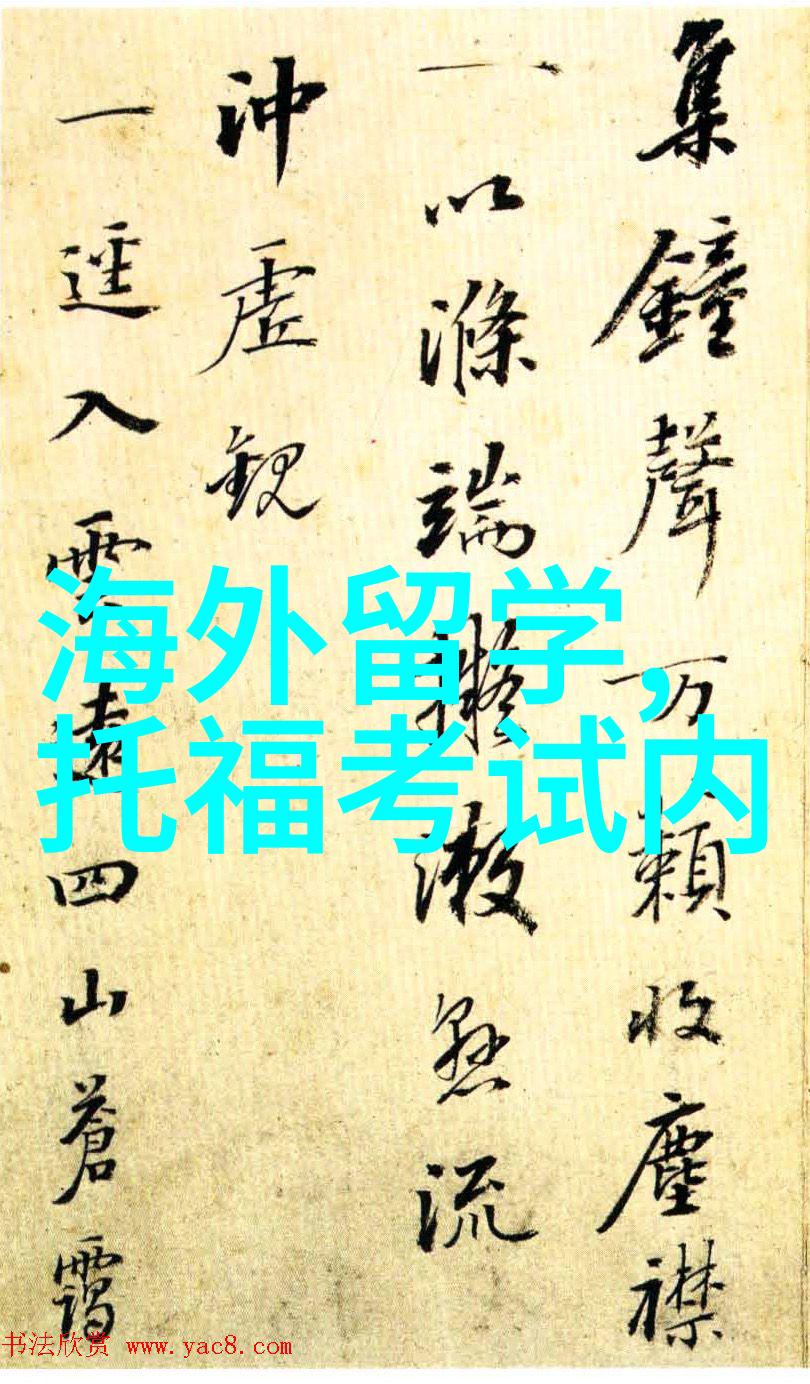 集鐘聲万籟收塵襟
一以滌端擬漱懸流
沖虛觀
一逕入雲遠四山蒼靄
海外留学,
托福考试内
书法欣赏 www.yac8.com